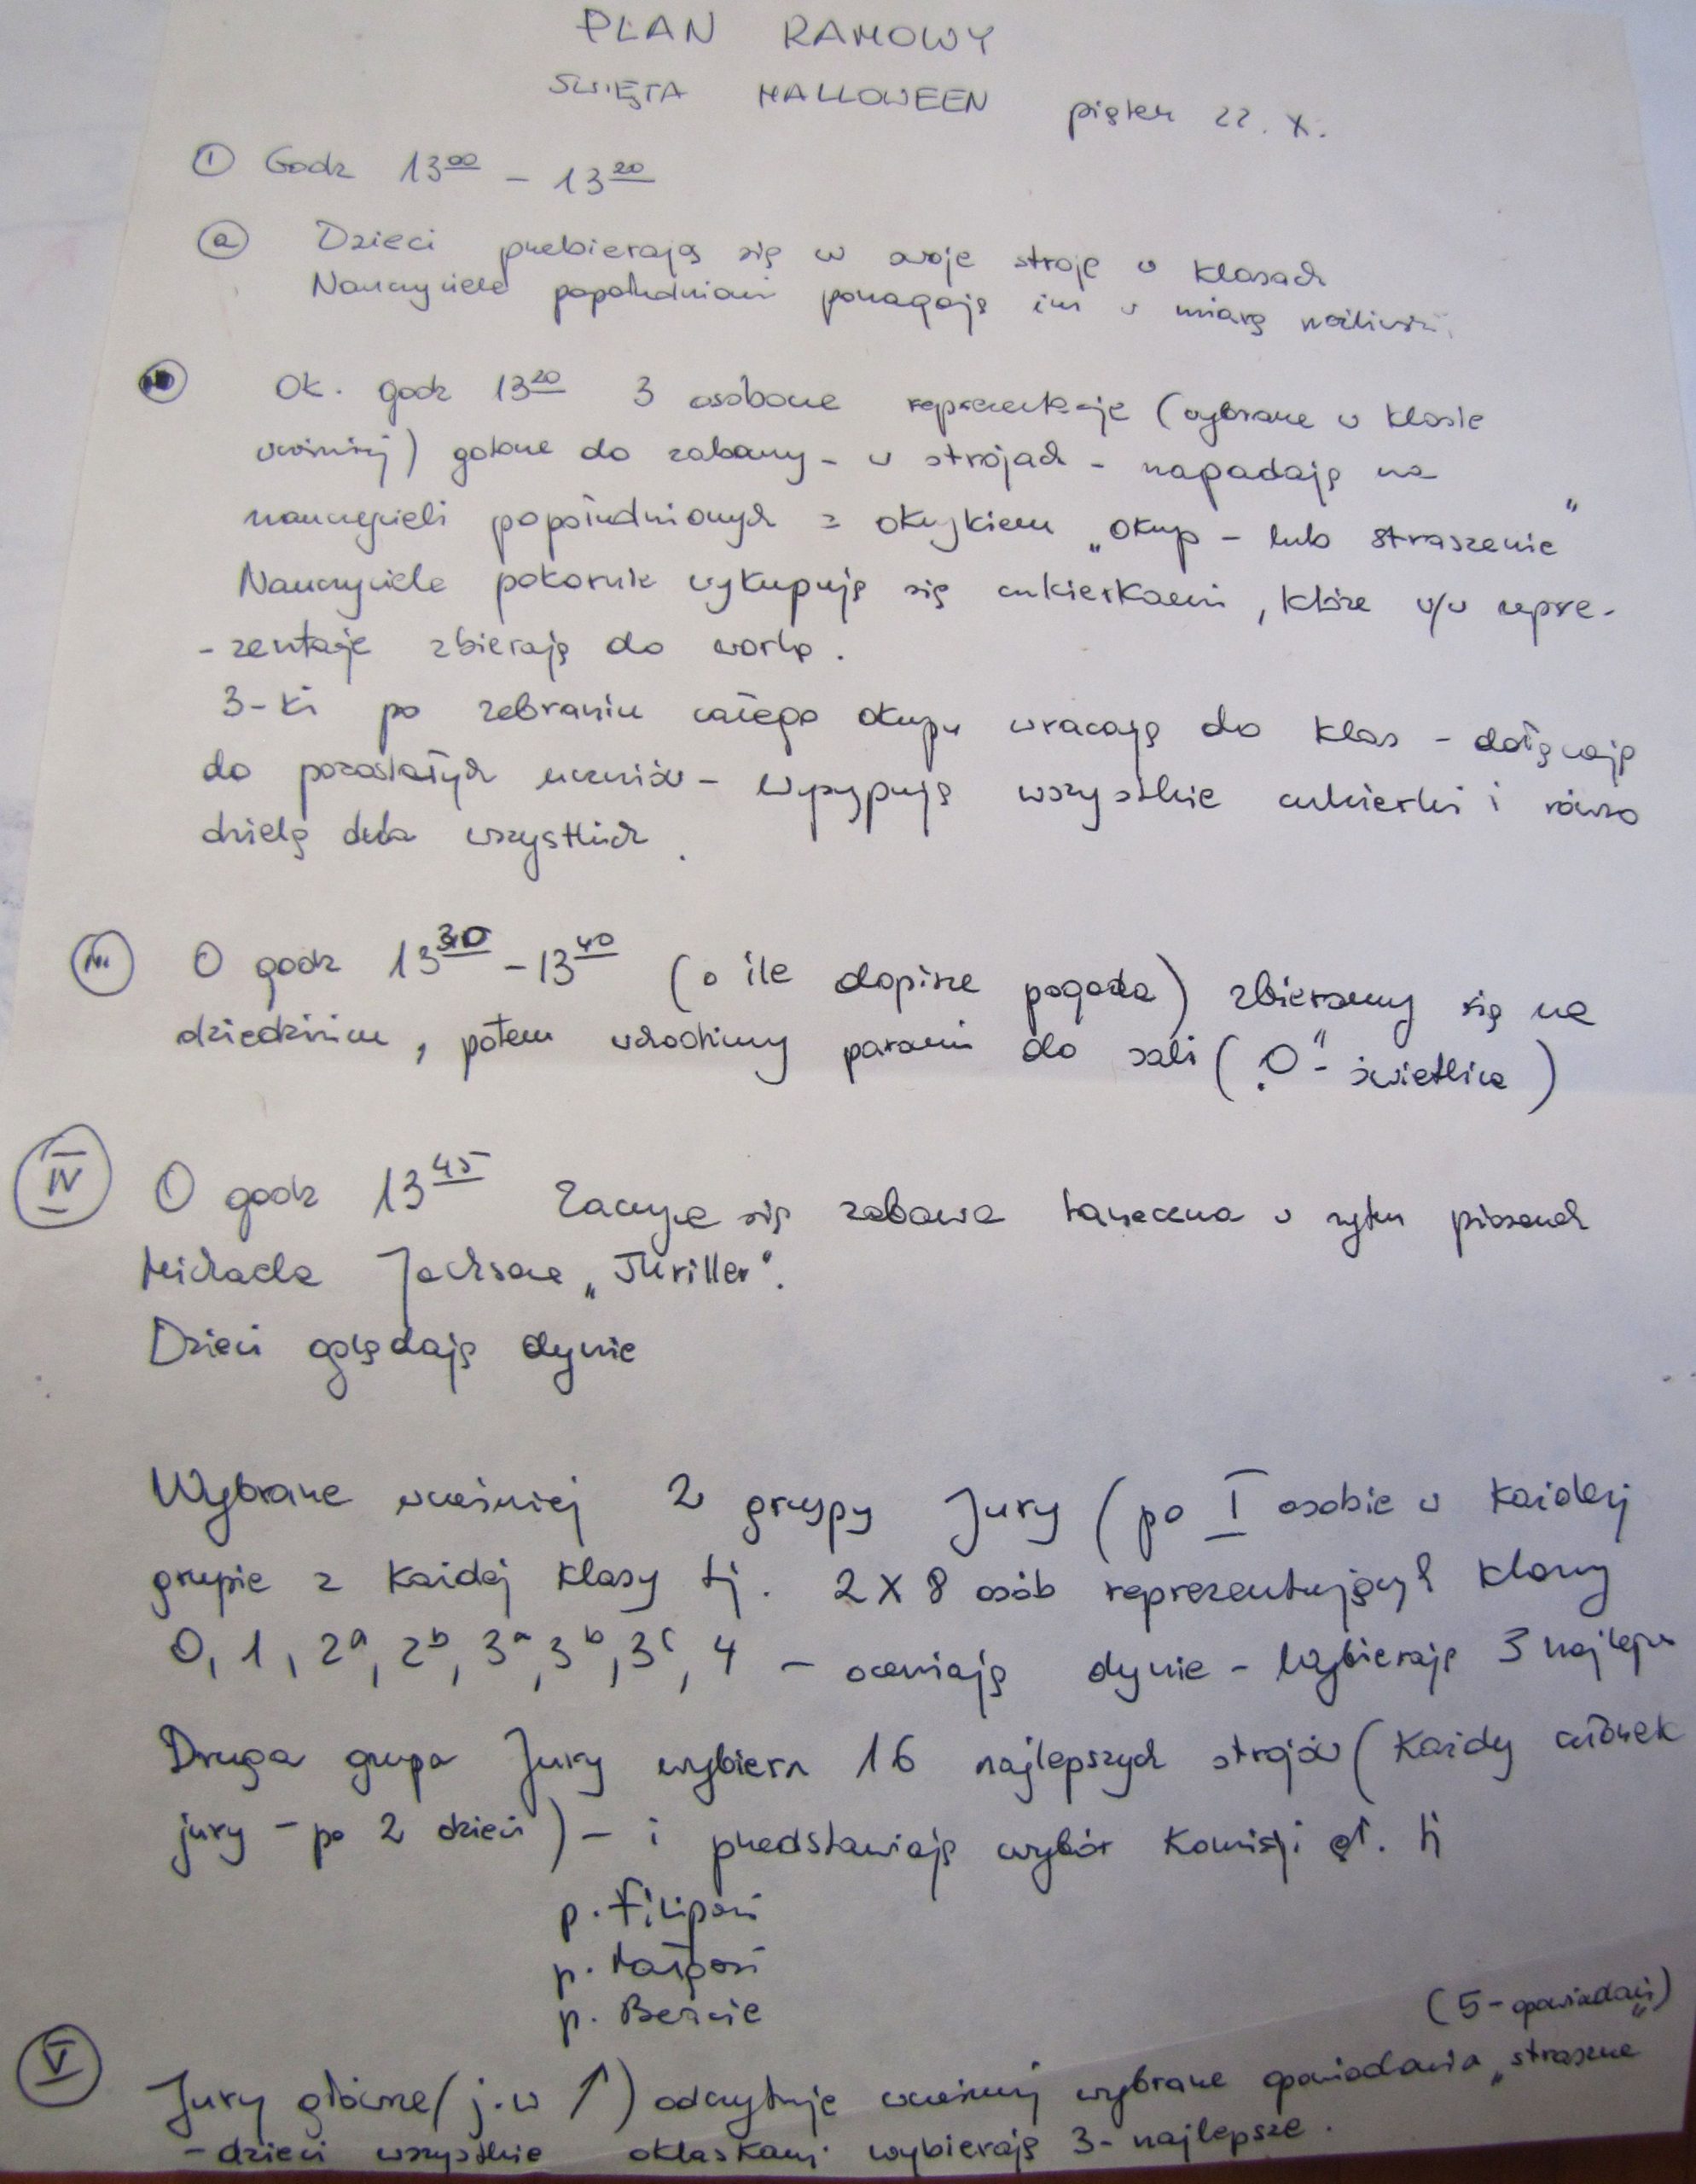 PLAN RAMOWY
ŚWIĘTA HALLOWEEN piątek 22. X.
① Godz 13⁰⁰ - 13²⁰
ⓐ Dzieci przebierają się w swoje stroje w klasach
Nauczyciele popołudniowi pomagają im w miarę możliwości.
Ok. godz 13²⁰ 3 osobowe reprezentacje (wybrane w klasie
wcześniej) gotowe do zabawy - w strojach - napadają na
nauczycieli popołudniowych z okrzykiem „okup - lub straszenie"
Nauczyciele pokornie wykupują się cukierkami, które w/w repre-
- zentacje zbierają do worka.
3-ki po zebraniu całego okupu wracają do klas - dołączają
do pozostałych uczniów - wysypują wszystkie cukierki i równo
dzielą dla wszystkich.
III O godz 13³⁰ - 13⁴⁰ (o ile dopisze pogoda) zbieramy się na
dziedzińcu, potem wchodzimy parami do sali („0" - świetlica)
IV O godz 13⁴⁵ Zaczyna się zabawa taneczna w rytm piosenek
Michaela Jacksona „Thriller".
Dzieci oglądają dynie
Wybrane wcześniej 2 grupy Jury (po I osobie w każdej
grupie z każdej klasy tj. 2 x 8 osób reprezentujących klasy
0, 1, 2ᵃ, 2ᵇ, 3ᵃ, 3ᵇ, 3ᶜ, 4 - oceniają dynie - wybierają 3 najlepsze
Druga grupa Jury wybiera 16 najlepszych strojów (Każdy członek
jury - po 2 dzieci) - i przedstawiają wybór Komisji gł. tj
p. Filipowi
p. Małgosi
p. Beacie
(5 - opowiadań)
V Jury główne (j.w ↑) odczytuje wcześniej wybrane opowiadania „straszne"
- dzieci wszystkie oklaskami wybierają 3 - najlepsze.